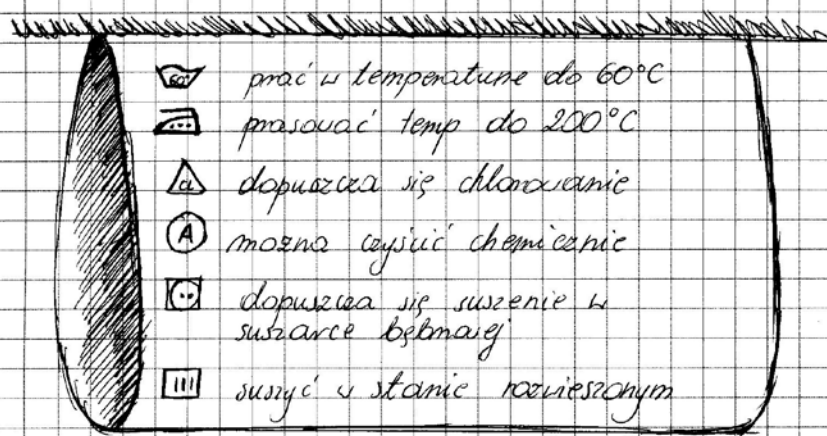 60° prać w temperaturze do 60°C
prasować temp do 200°C
cl dopuszcza się chlorowanie
A można czyścić chemicznie
dopuszcza się suszenie w
suszarce bębnowej
suszyć w stanie rozwieszonym